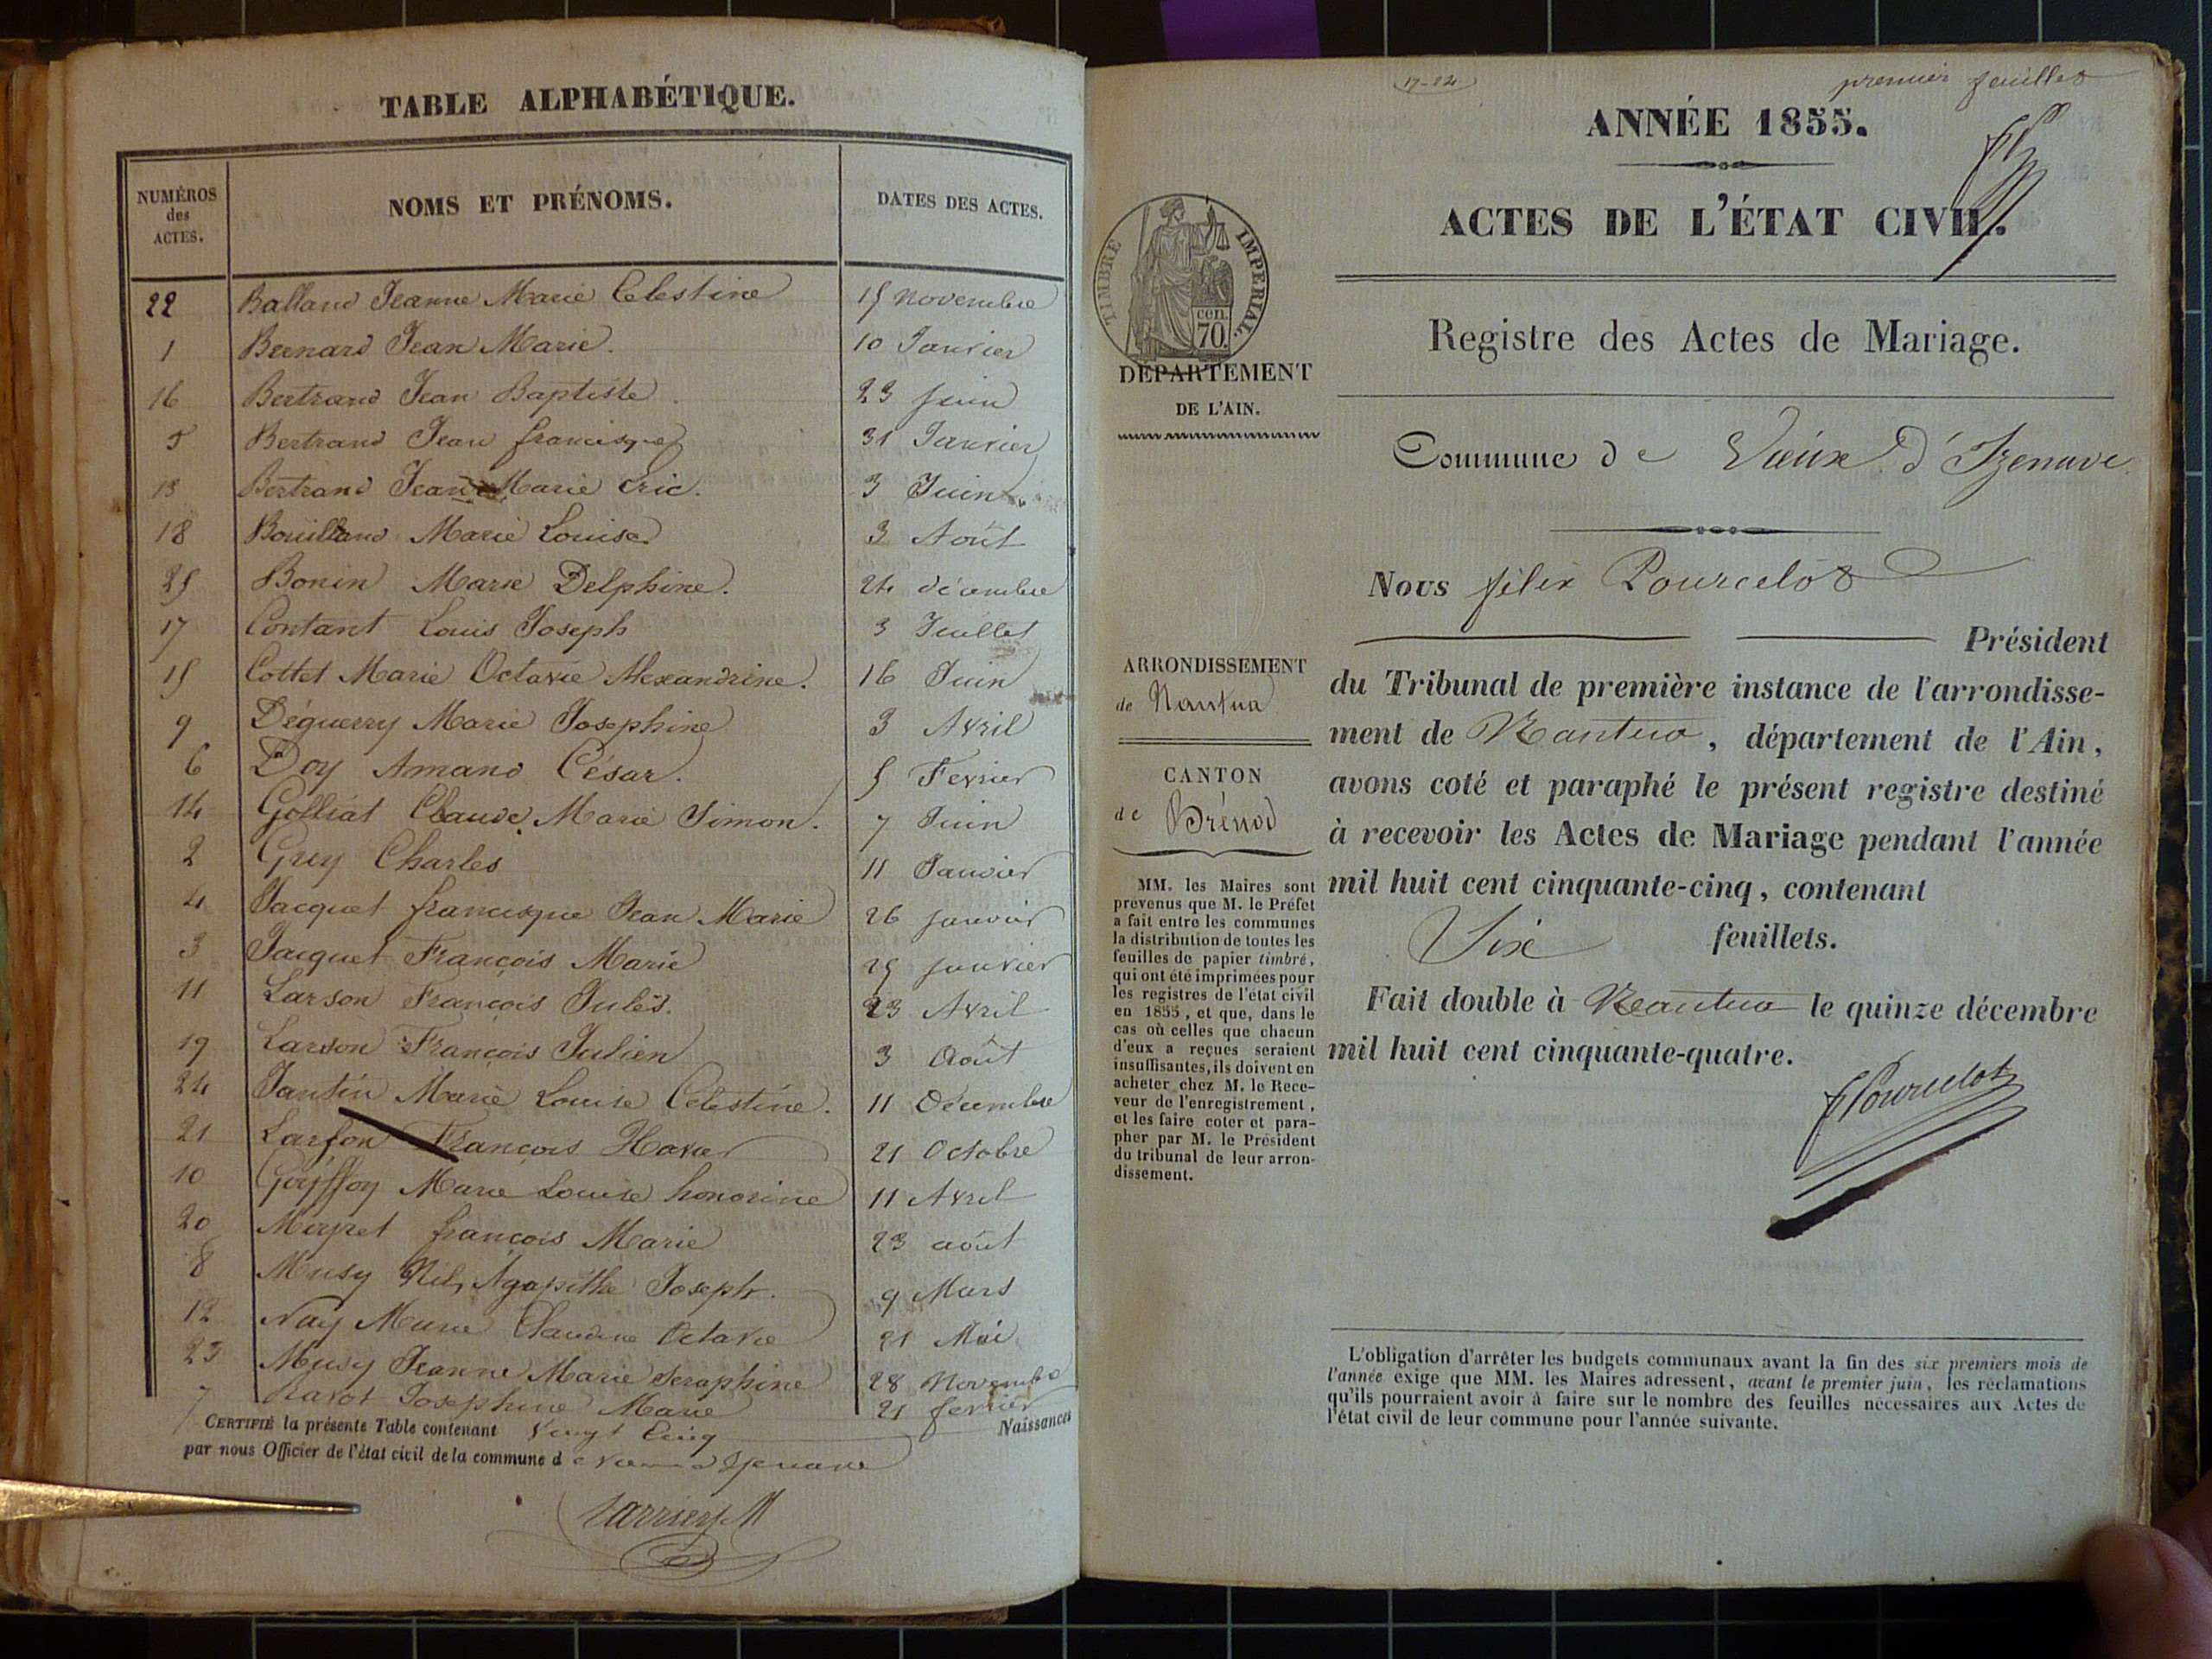 TABLE ALPHABÉTIQUE.
NUMÉROS des ACTES. NOMS ET PRÉNOMS. DATES DES ACTES.
22 Balland Jeanne Marie Celestine 15 novembre
1 Bernard Jean Marie. 10 Janvier
16 Bertrand Jean Baptiste 23 juin
5 Bertrand Jean francisque 31 Janvier
13 Bertrand Jean Marie Eric. 3 Juin
18 Bouilland Marie Louise 3 Août
25 Bonin Marie Delphine. 24 décembre
17 Contant Louis Joseph 3 Juillet
15 Cottet Marie Octavie Alexandrine. 16 Juin
9 Déguerry Marie Josephine 3 Avril
6 Doy Amand César. 5 Fevrier
14 Golliat Claude Marie Simon. 7 Juin
2 Guy Charles 11 Janvier
4 Jacquet francisque Jean Marie 26 janvier
3 Jacquet François Marie 25 janvier
11 Larson François Jules. 23 Avril
19 Larson François Julien 3 Août
24 Jantin Marie Louise Celestine. 11 Décembre
21 Larson François Xavier 21 Octobre
10 Goÿffoy Marie Louise honorine 11 Avril
20 François Marie 23 août
8 Musy Agapithe Joseph. 9 Mars
12 Nay Marie Claudine Octavie 21 Mai
23 Musy Jeanne Marie Seraphine 28 Novembre
7 Ravot Josephine Marie 21 fevrier
CERTIFIÉ la présente Table contenant Vingt Cinq Naissances
par nous Officier de l'état civil de la commune d e Vieux d'Izenave
17-24
premier feuillet
ANNÉE 1855.
ACTES DE L'ÉTAT CIVIL.
TIMBRE IMPÉRIAL.
cen. 70.
Registre des Actes de Mariage.
DÉPARTEMENT
DE L'AIN.
Commune de Vieux d'Izenave
Nous félix Pourcelot
Président
ARRONDISSEMENT
de Nantua
du Tribunal de première instance de l'arrondisse-
ment de Nantua, département de l'Ain,
CANTON
de Brénod
avons coté et paraphé le présent registre destiné
à recevoir les Actes de Mariage pendant l'année
mil huit cent cinquante-cinq, contenant
Six feuillets.
Fait double à Nantua le quinze décembre
mil huit cent cinquante-quatre.
FPourcelot
MM. les Maires sont
prévenus que M. le Préfet
a fait entre les communes
la distribution de toutes les
feuilles de papier timbré,
qui ont été imprimées pour
les registres de l'état civil
en 1855, et que, dans le
cas où celles que chacun
d'eux a reçues seraient
insuffisantes, ils doivent en
acheter chez M. le Rece-
veur de l'enregistrement,
et les faire coter et para-
pher par M. le Président
du tribunal de leur arron-
dissement.
L'obligation d'arrêter les budgets communaux avant la fin des six premiers mois de
l'année exige que MM. les Maires adressent, avant le premier juin, les réclamations
qu'ils pourraient avoir à faire sur le nombre des feuilles nécessaires aux Actes de
l'état civil de leur commune pour l'année suivante.